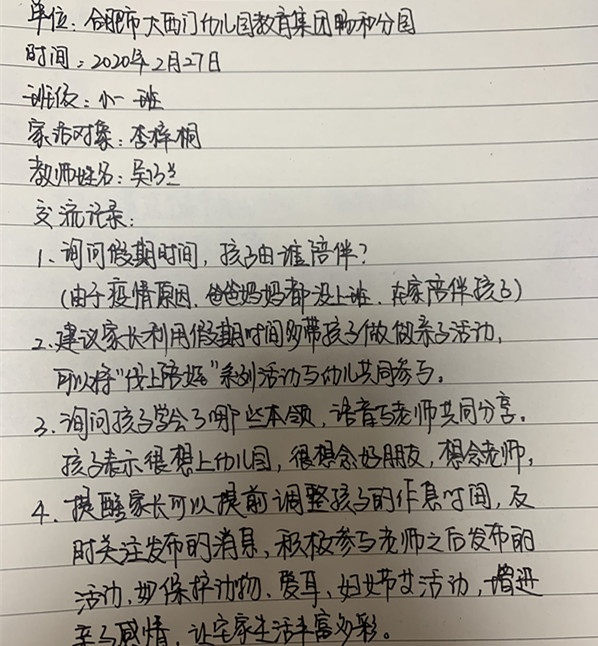 单位:合肥市大西门幼儿园教育集团畅和分园
时间:2020年2月27日
班级:小一班
家访对象:李梓桐
教师姓名:吴巧兰
交流记录:
1、询问假期时间,孩子由谁陪伴?
(由于疫情原因、爸爸妈妈都没上班、在家陪伴孩子)
2、建议家长利用假期时间多带孩子做做亲子活动,
可以将“线上陪娃”系列活动与幼儿共同参与。
3、询问孩子学会了哪些本领,语音与老师共同分享。
孩子表示很想上幼儿园,很想念好朋友,想念老师。
4、提醒家长可以提前调整孩子的作息时间,及
时关注发布的消息,积极参与老师之后发布的
活动,如保护动物、爱耳、妇女节等活动,增进
亲子感情,让宅家生活丰富多彩。